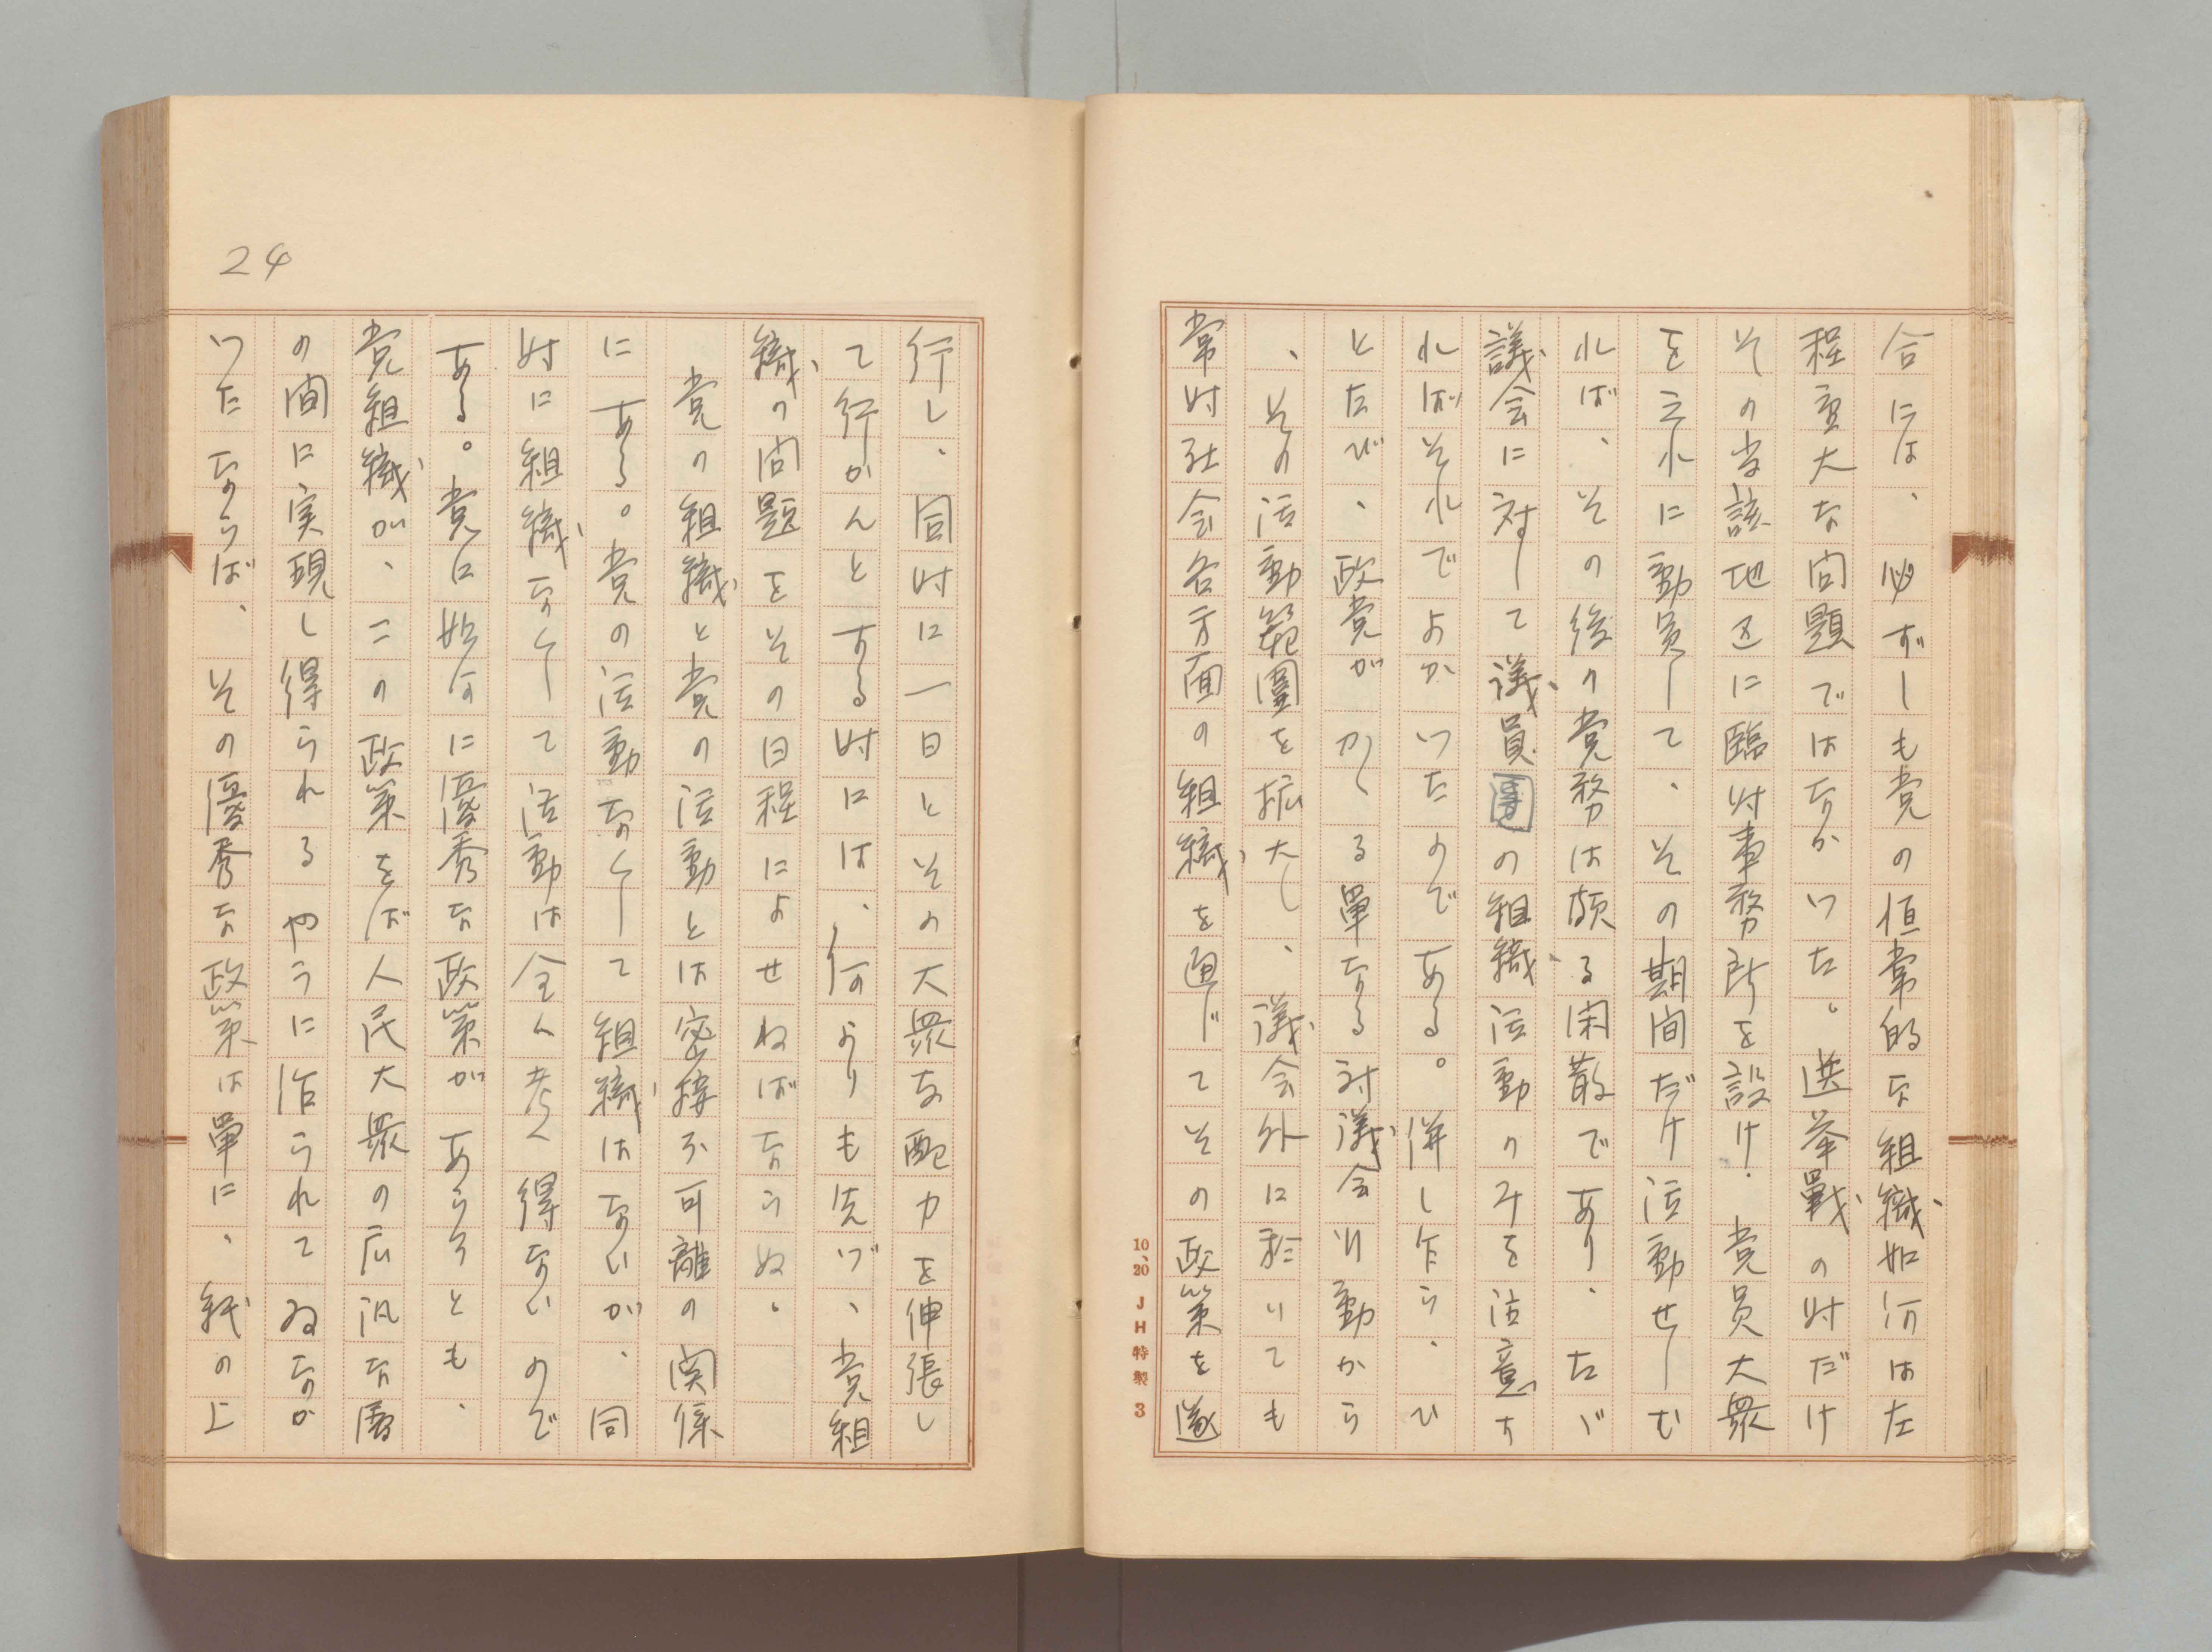 合には、必ずしも党の恒常的な組織如何は左
程重大な問題ではなかつた。選挙戦の時だけ
その当該地区に臨時事務所を設け、党員大衆
を之れに動員して、その期間だけ活動せしむ
れば、その後の党務は頗る閑散であり、たゞ
議会に対して議員団の組織活動のみを注意す
ればそれでよかつたのである。併し乍ら、ひ
とたび、政党がかゝる単なる対議会行動から
、その活動範囲を拡大し、議会外に於いても
常時社会各方面の組織を通じてその政策を遂
10、20 JH特製 3
24
行し、同時に一日とその大衆な配力を伸張し
て行かんとする時には、何よりも先づ、党組
織の問題をその日程によせねばならぬ。
党の組織と党の活動とは密接不可離の関係
にある。党の活動なくして組織はないが、同
時に組織なくして活動は全く考へ得ないので
ある。党に如何に優秀な政策があらうとも、
党組織が、この政策をば人民大衆の広汎な層
の間に実現し得られるやうに作られてゐなか
つたならば、その優秀な政策は単に、紙の上